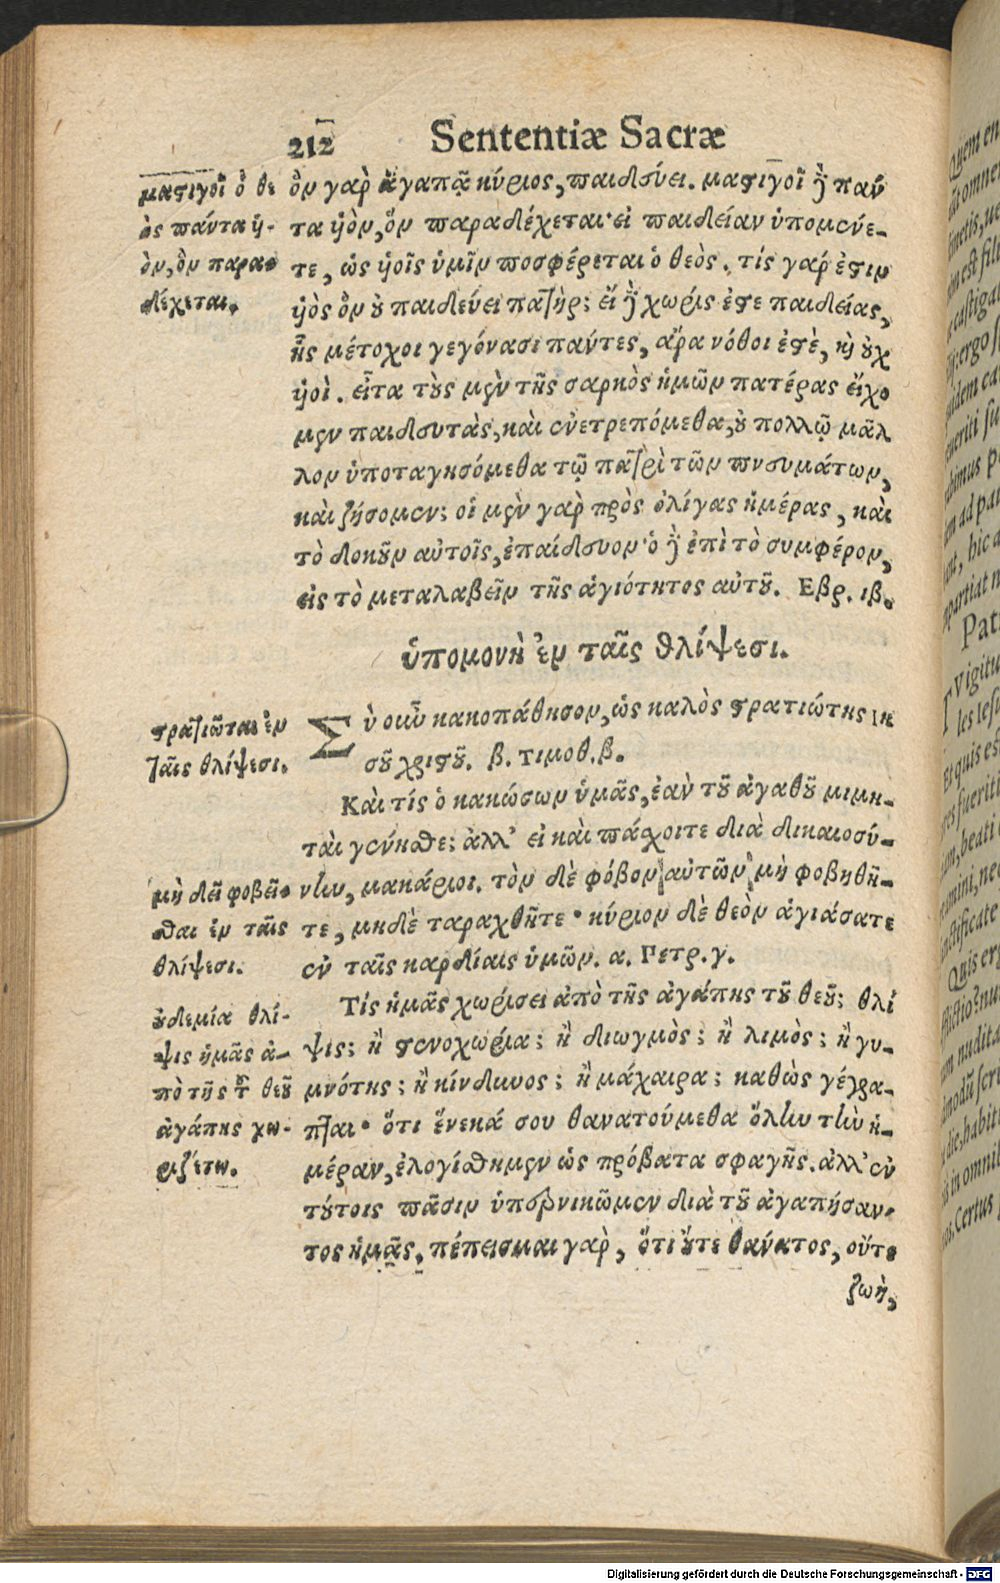 212 Sententiæ Sacræ
μαστιγοῖ ὁ θε
ὸς πάντα ὑ-
ὸν, ὃν παρα-
δέχεται.
ὃν γὰρ ἀγαπᾷ κύριος, παιδεύει. μαστιγοῖ δὲ πάν
τα ὑὸν, ὃν παραδέχεται· εἰ παιδείαν ὑπομένε-
τε, ὡς ὑοῖς ὑμῖν προσφέρεται ὁ θεὸς. τίς γάρ ἐστιν
ὑὸς ὃν οὐ παιδεύει πατὴρ; εἴ δὲ χωρίς ἐστε παιδείας,
ἧς μέτοχοι γεγόνασι πάντες, ἄρα νόθοι ἐστὲ, καὶ οὐχ
ὑοὶ. εἶτα τοὺς μὲν τῆς σαρκὸς ἡμῶν πατέρας εἴχο
μεν παιδευτὰς, καὶ ἐνετρεπόμεθα, οὐ πολλῷ μᾶλ
λον ὑποταγησόμεθα τῷ πατρὶ τῶν πνευμάτων,
καὶ ζήσομεν; οἱ μὲν γὰρ πρὸς ὀλίγας ἡμέρας, καὶ
τὸ δοκοῦν αὐτοῖς, ἐπαίδευον· ὁ δὲ ἐπὶ τὸ συμφέρον,
εἰς τὸ μεταλαβεῖν τῆς ἁγιότητος αὐτοῦ. Εβρ. ιβ.
ὑπομονὴ ἐν ταῖς θλίψεσι.
στρατιῶται ἐν
ταῖς θλίψεσι.
Σὺ οὖν κακοπάθησον, ὡς καλὸς στρατιώτης ιη
σοῦ χριστοῦ. β. τιμοθ. β.
Καὶ τίς ὁ κακώσων ὑμᾶς, ἐὰν τοῦ ἀγαθοῦ μιμη-
ταὶ γένησθε; ἀλλ' εἰ καὶ πάσχοιτε διὰ δικαιοσύ-
μὴ δεῖ φοβεῖ-
σθαι ἐν ταῖς
θλίψεσι.
νην, μακάριοι. τὸν δὲ φόβον αὐτῶν μὴ φοβηθῆ-
τε, μηδὲ ταραχθῆτε· κύριον δὲ θεὸν ἁγιάσατε
ἐν ταῖς καρδίαις ὑμῶν. α. Πετρ. γ.
οὐδεμία θλί-
ψις ἡμᾶς ἀ-
πὸ τῆς τοῦ θεοῦ
ἀγάπης χω-
ριζέτω.
Τίς ἡμᾶς χωρίσει ἀπὸ τῆς ἀγάπης τοῦ θεοῦ; θλί
ψις; ἢ στενοχωρία; ἢ διωγμὸς; ἢ λιμὸς; ἢ γυ-
μνότης; ἢ κίνδυνος; ἢ μάχαιρα; καθὼς γέγρα-
πται· ὅτι ἕνεκά σου θανατούμεθα ὅλην τὴν ἡ-
μέραν, ἐλογίσθημεν ὡς πρόβατα σφαγῆς. ἀλλ' ἐν
τούτοις πᾶσιν ὑπερνικῶμεν διὰ τοῦ ἀγαπήσαν-
τος ἡμᾶς. πέπεισμαι γὰρ, ὅτι οὔτε θάνατος, οὔτε
ζωὴ,
Digitalisierung gefördert durch die Deutsche Forschungsgemeinschaft - DFG